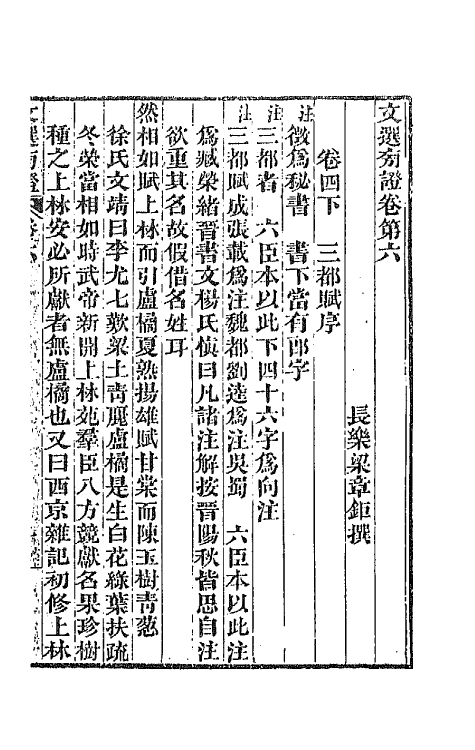 文選旁證卷第六
長樂梁章鉅撰
卷四下　三都賦序
注徵爲秘書　書下當有郎字
注三都者　六臣本以此下四十六字爲向注
注三都賦成張載爲注魏都劉逵爲注吳蜀　六臣本以此注
爲臧榮緒晉書文楊氏慎曰凡諸注解按晉陽秋皆思自注
欲重其名故假借名姓耳
然相如賦上林而引盧橘夏熟揚雄賦甘棠而陳玉樹靑蔥
徐氏文靖曰李尤七歎梁土靑麗盧橘是生白花綠葉扶疏
冬榮當相如時武帝新開上林苑羣臣八方競獻名果珍樹
種之上林安必所獻者無盧橘也又曰西京雜記初修上林
文選旁證